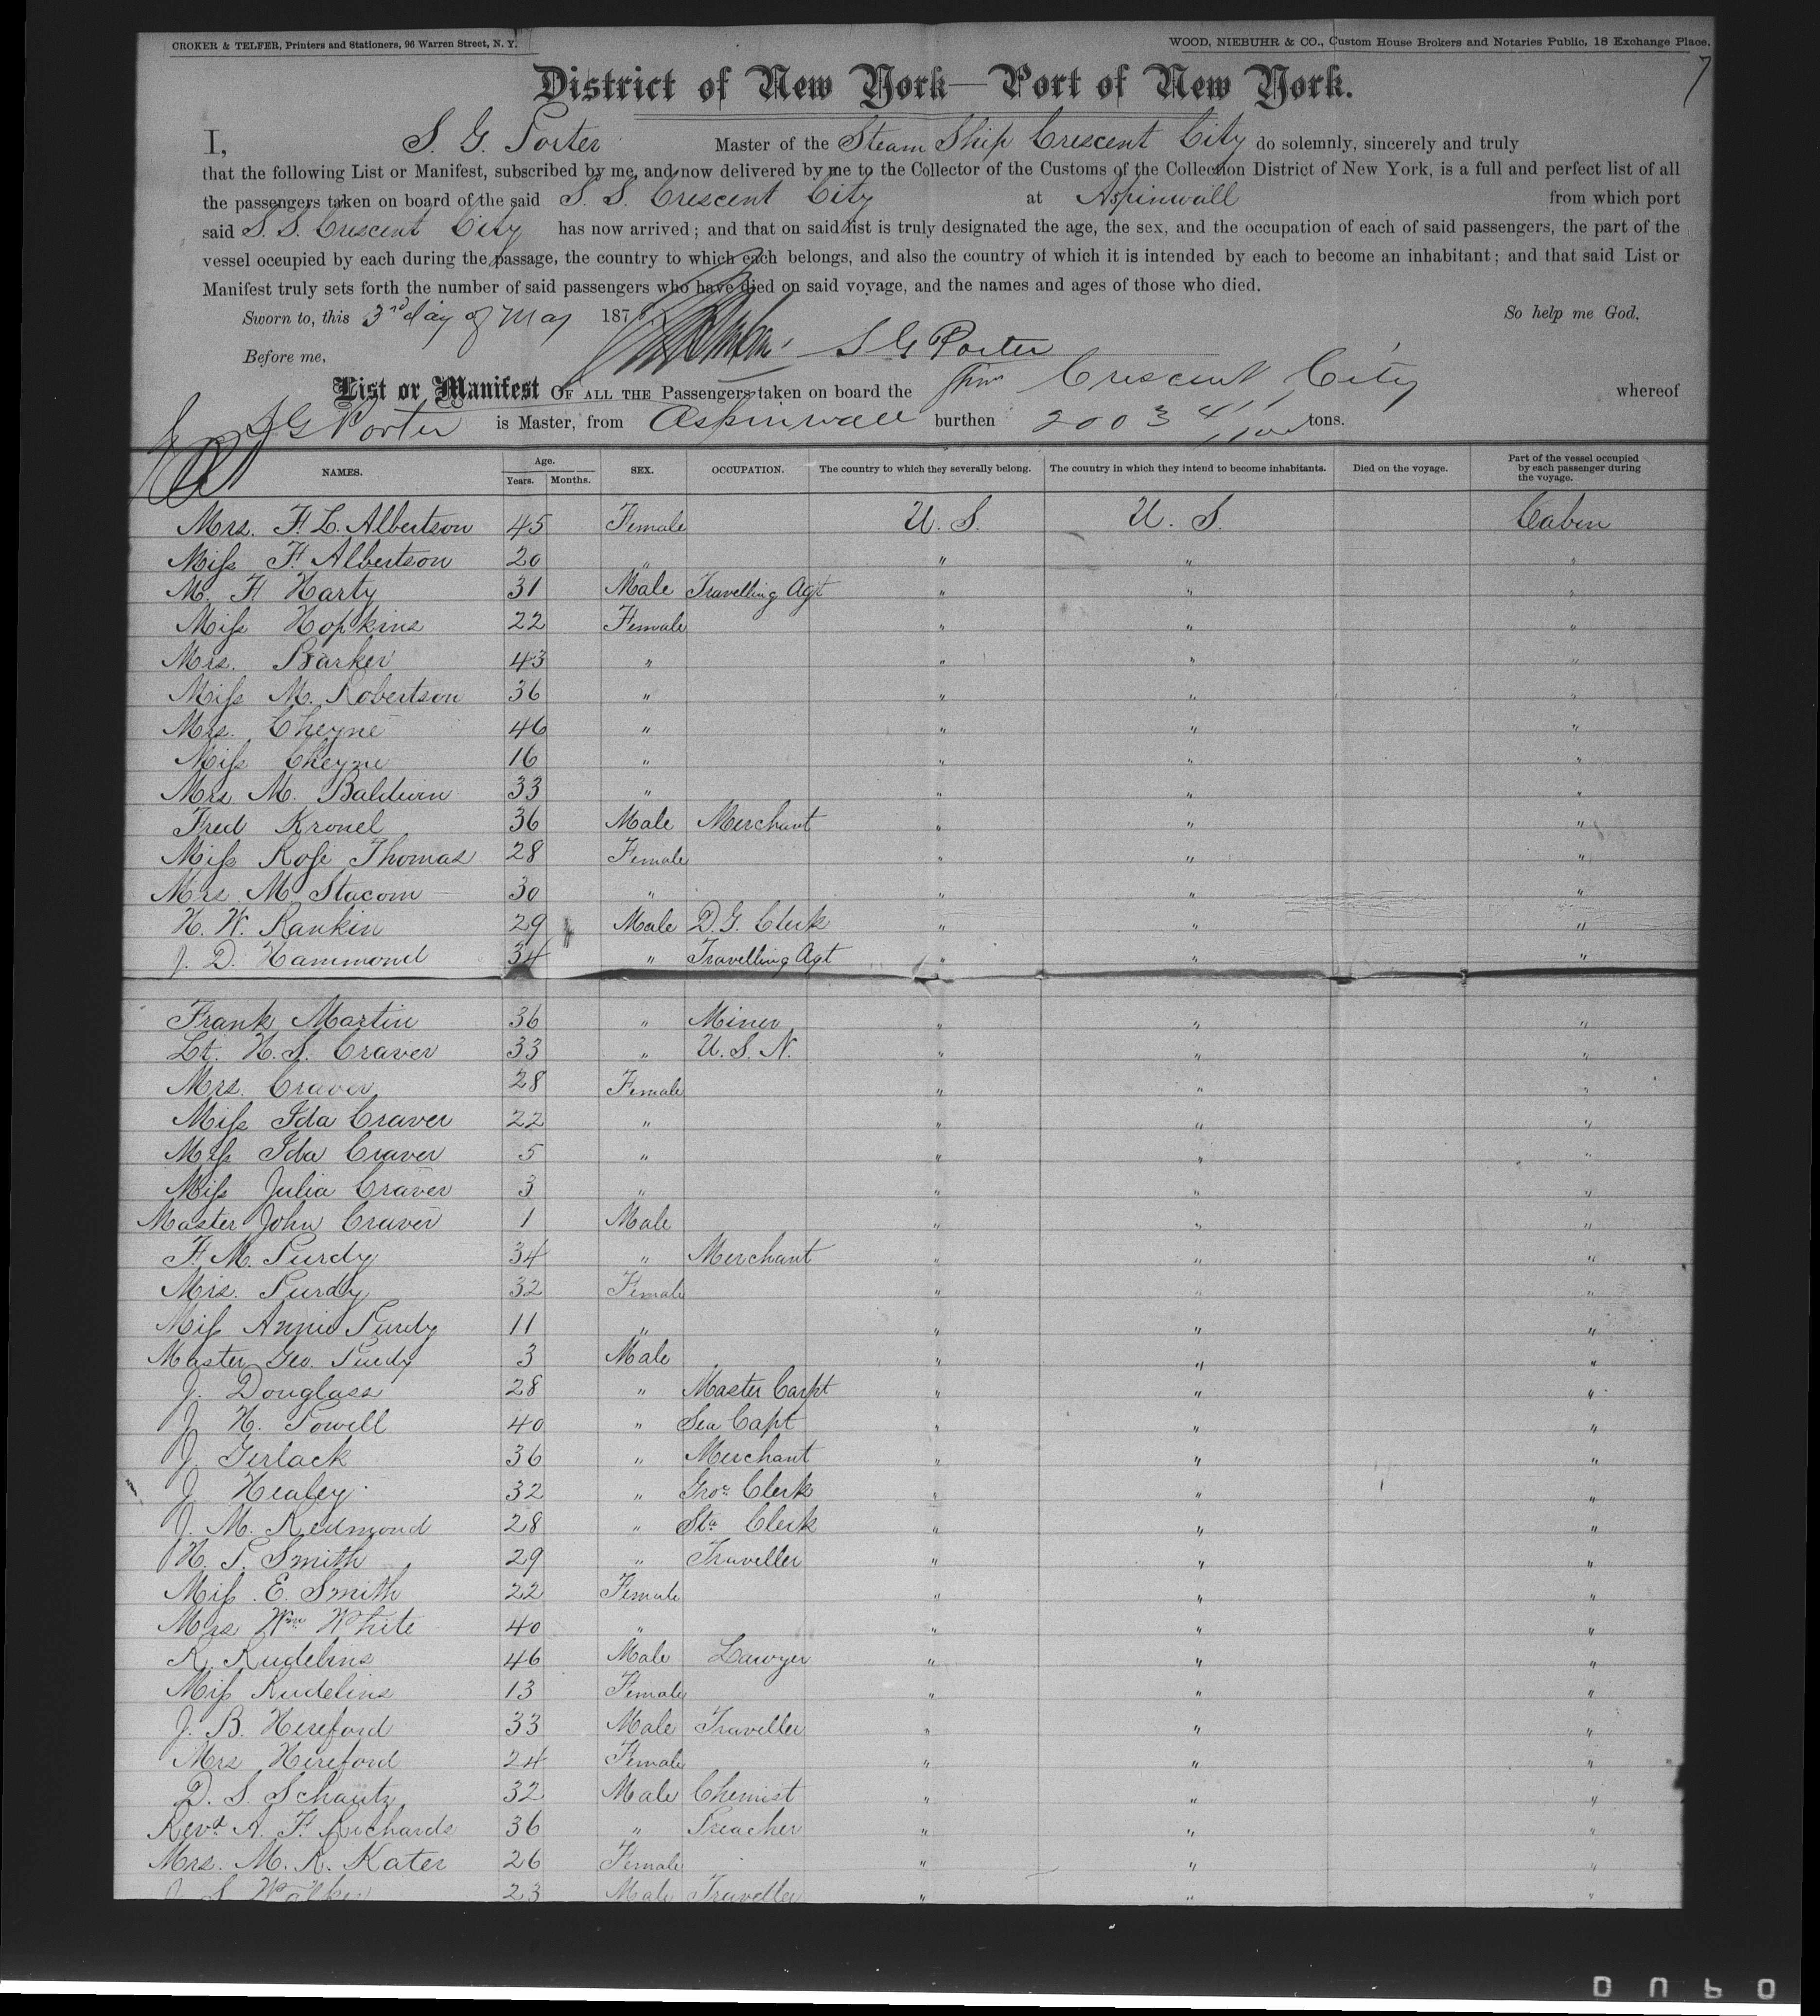 CROKER & TELFER, Printers and Stationers, 96 Warren Street, N. Y. WOOD, NIEBUHR & CO., Custom House Brokers and Notaries Public, 18 Exchange Place.
7
District of New York—Port of New York.
I, S. G. Porter Master of the Steam Ship Crescent City do solemnly, sincerely and truly
that the following List or Manifest, subscribed by me, and now delivered by me to the Collector of the Customs of the Collection District of New York, is a full and perfect list of all
the passengers taken on board of the said S. S. Crescent City at Aspinwall from which port
said S. S. Crescent City has now arrived; and that on said list is truly designated the age, the sex, and the occupation of each of said passengers, the part of the
vessel occupied by each during the passage, the country to which each belongs, and also the country of which it is intended by each to become an inhabitant; and that said List or
Manifest truly sets forth the number of said passengers who have died on said voyage, and the names and ages of those who died.
Sworn to, this 3rd day of May 187 So help me God.
Before me, S G Porter
List or Manifest OF ALL THE Passengers taken on board the Crescent City whereof
S G Porter is Master, from Aspinwall burthen 2003 tons.
NAMES. Age. Years. Months. SEX. OCCUPATION. The country to which they severally belong. The country in which they intend to become inhabitants. Died on the voyage. Part of the vessel occupied by each passenger during the voyage.
Mrs. F. L. Albertson 45 Female U. S. U. S. Cabin
Miss F. Albertson 20 " " " "
M. F. Harty 31 Male Travelling Agt " " "
Miss Hopkins 22 Female " " "
Mrs. Barker 43 " " " "
Miss M. Robertson 36 " " " "
Mrs. Cheyne 46 " " " "
Miss Cheyne 16 " " " "
Mrs M. Baldwin 33 " " " "
Fred Kronel 36 Male Merchant " " "
Miss Rose Thomas 28 Female " " "
Mrs M. Stacom 30 " " " "
H. W. Rankin 29 Male D. G. Clerk " " "
J. D. Hammond 34 " Travelling Agt " " "
Frank Martin 36 " Miner " " "
Lt. H. S. Craver 33 " U. S. N. " " "
Mrs. Craver 28 Female " " "
Miss Ida Craver 22 " " " "
Miss Ida Craver 5 " " " "
Miss Julia Craver 3 " " " "
Master John Craver 1 Male " " "
F. M. Purdy 34 " Merchant " " "
Mrs. Purdy 32 Female " " "
Miss Annie Purdy 11 " " " "
Master Geo. Purdy 3 Male " " "
J. Douglass 28 " Master Carpt " " "
J. H. Powell 40 " Sea Capt " " "
J. Gerlack 36 " Merchant " " "
J. Healey 32 " Gror Clerk " " "
J. M. Redmond 28 " Sta Clerk " " "
H. P. Smith 29 " Traveller " " "
Miss E. Smith 22 Female " " "
Mrs Wm White 40 " " " "
R. Rudelins 46 Male Lawyer " " "
Miss Rudelins 13 Female " " "
J. B. Hereford 33 Male Traveller " " "
Mrs Hereford 24 Female " " "
D. S. Schautz 32 Male Chemist " " "
Revd A. F. Richards 36 " Preacher " " "
Mrs. M. R. Kater 26 Female " " "
J. S. Walker 23 Male Traveller " " "